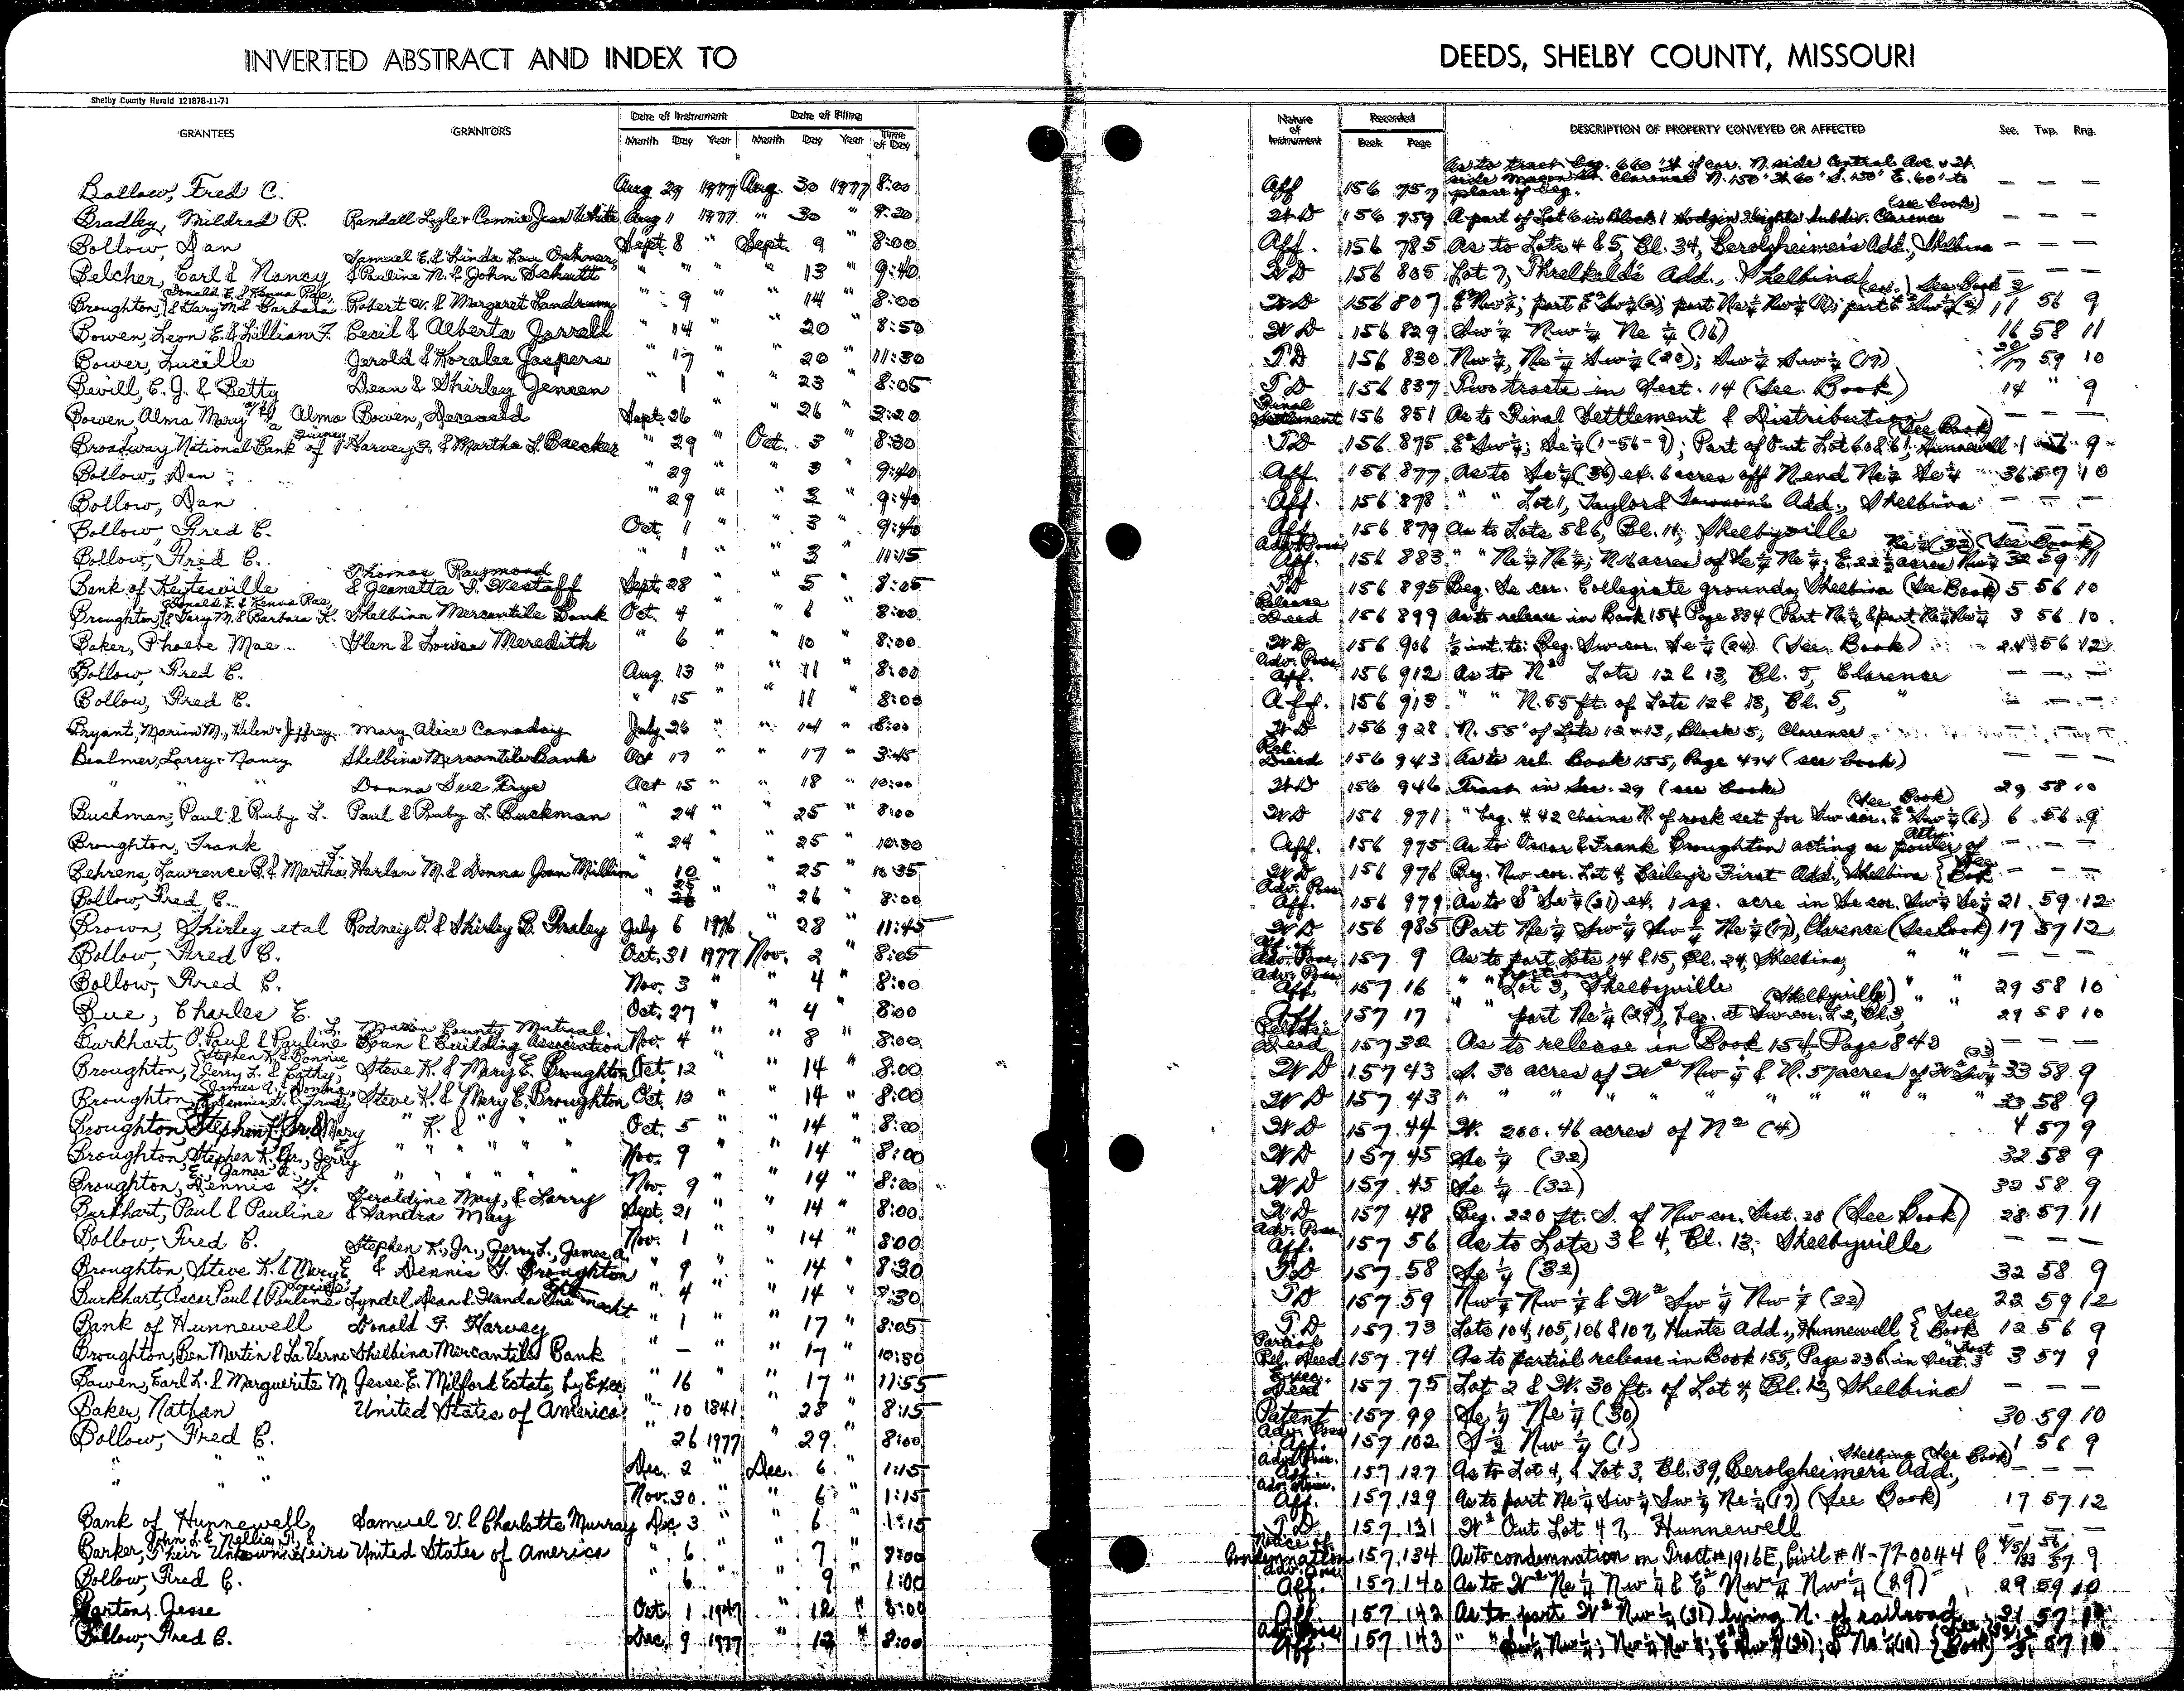 INVERTED ABSTRACT AND INDEX TO DEEDS, SHELBY COUNTY, MISSOURI
Shelby County Herald 12187B-11-71
GRANTEES GRANTORS Date of Instrument Month Day Year Date of Filing Month Day Year Time of Day Nature of Instrument Recorded Book Page DESCRIPTION OF PROPERTY CONVEYED OR AFFECTED Sec. Twp. Rng.
Bollow, Fred C. Aug 29 1977 Aug. 30 1977 8:00 Aff 156 757 place of beg. — — —
Bradley, Mildred R. Randall Lyle & Connie Jean White Aug 1 1977 " 30 " 9:20 WD 156 759 A part of Lot 6 in Block 1 Hodgin Heights Subdiv. Clarence (see book) — — —
Bollow, Dan Sept. 8 " Sept. 9 " 8:00 Aff. 156 785 As to Lots 4 & 5, Bl. 34, Berolzheimer's Add., Shelbina — — —
Belcher, Earl & Nancy Samuel E. & Linda Lou & Pauline N. & John Schutt " " " " 13 " 9:40 WD 156 805 Lot 7, Threlkeld's Add., Shelbina — — —
Broughton, Donald E. & Kenna Rae, & Gary M. & Barbara Robert V. & Margaret Landrum " 9 " " 14 " 8:00 WD 156 807 11 56 9
Bowen, Leon E. & Lillian F. Cecil & Alberta Jarrell " 14 " " 20 " 8:50 WD 156 829 Sw ¼ Nw ¼ Ne ¼ (16) 16 58 11
Bower, Lucille Jerold & Koralee Jaspers " 17 " " 20 " 11:30 TD 156 830 Nw ¼, Ne ¼ Sw ¼ (20); Sw ¼ Sw ¼ (17) 20/17 59 10
Bevill, C. J. & Betty Dean & Shirley Jensen " 1 " " 23 " 8:05 TD 156 837 Two tracts in Sect. 14 (See Book) 14 " 9
Bowen, Alma Mary Alma Bowen, Deceased Sept. 26 " " 26 " 3:20 Final Settlement 156 851 As to Final Settlement & Distribution (See Book) — — —
Broadway National Bank of Quincy Harvey F. & Martha L. Baecker " 29 " Oct. 3 " 8:30 TD 156 875 E² Sw ¼; Se ¼ (1-56-9); Part of Out Lot 60 & 61, Hunnewell 1 56 9
Bollow, Dan " 29 " " 3 " 9:40 Aff. 156 877 As to Se ¼ (36) ex. 6 acres off N end Ne ¼ Se ¼ 36 57 10
Bollow, Dan " 29 " " 3 " 9:40 Aff. 156 878 " " Lot 1, Taylor & Add., Shelbina — — —
Bollow, Fred C. Oct. 1 " " 3 " 9:40 Aff. 156 879 As to Lots 5 & 6, Bl. 14, Shelbyville
Bollow, Fred C. " 1 " " 3 " 11:15 Adv. Poss. Aff. 156 883 " " Ne ¼ Ne ¼; N 16 acres of Se ¼ Ne ¼; Ne ¼ (32) (See Book) 32 59 11
Bank of Keytesville Thomas Raymond & Jeanetta J. Westoff Sept. 28 " " 5 " 8:05 TD 156 895 Beg. Se cor. Collegiate grounds, Shelbina (See Book) 5 56 10
Broughton, Donald E. & Kenna Rae, & Gary M. & Barbara K. Shelbina Mercantile Bank Oct. 4 " " 6 " 8:00 Release Deed 156 899 As to release in Book 154 Page 834 3 56 10
Baker, Phoebe Mae Glen & Louise Meredith " 6 " " 10 " 8:00 WD 156 906 ½ int. to: Beg. Sw cor. Se ¼ (24) (See Book) 24 56 12
Bollow, Fred C. Aug. 13 " " 11 " 8:00 Adv. Poss. Aff. 156 912 As to N² Lots 12 & 13, Bl. 5, Clarence — — —
Bollow, Fred C. " 15 " " 11 " 8:00 Aff. 156 913 " " N. 55 ft. of Lots 12 & 13, Bl. 5, " — — —
Bryant, Marion M., Helen & Jeffrey Mary Alice Canaday July 26 " " 14 " 8:00 WD 156 928 N. 55' of Lots 12 & 13, Block 5, Clarence — — —
Bealmer, Larry & Nancy Shelbina Mercantile Bank Oct 17 " " 17 " 3:45 Rel. Deed 156 943 As to rel. Book 155, Page 474 (see book) — — —
" " Donna Sue Frye Oct 15 " " 18 " 10:00 WD 156 946 Tract in Sec. 29 (see book) 29 58 10
Buckman, Paul & Ruby L. Paul & Ruby L. Buckman " 24 " " 25 " 8:00 WD 156 971 " beg. 4.42 chains N. of rock set for Sw cor. E² Sw ¼ (6) (See Book) 6 56 9
Broughton, Frank " 24 " " 25 " 10:30 Aff. 156 975 As to Oscar & Frank Broughton acting as power of Atty. — — —
Behrens, Lawrence & Martha L. Harlan M. & Donna Jean Million " 10 " " 25 " 10:35 WD 156 976 Beg. Nw cor. Lot 4, Bailey's First Add., Shelbina {See Book — — —
Bollow, Fred C. " 25 " " 26 " 8:00 Adv. Poss. Aff. 156 979 As to S² Se ¼ (21) ex. 1 sq. acre in Se cor. Sw ¼ Se ¼ 21 59 12
Brown, Shirley et al Rodney O. & Shirley B. Fraley July 6 1976 " 28 " 11:45 WD 156 985 Part Ne ¼ Sw ¼ Sw ¼ Ne ¼ (17), Clarence (See Book) 17 57 12
Bollow, Fred C. Oct. 31 1977 Nov. 2 " 8:05 Aff. of Adv. Poss. 157 9 As to part Lots 14 & 15, Bl. 24, Shelbina — — —
Bollow, Fred C. Nov. 3 " " 4 " 8:00 Adv. Poss. Aff. 157 16 " " fractional Lot 3, Shelbyville " " 29 58 10
Bue, Charles E. Oct. 27 " " 4 " 8:00 Aff. 157 17 " " part Ne ¼ (29), beg. at Sw cor. L 2, Bl. 3, (Shelbyville) 29 58 10
Burkhart, O. Paul & Pauline L. Marion County Mutual Loan & Building Association Nov. 4 " " 8 " 8:00 Release Deed 157 32 As to release in Book 154, Page 843 — — —
Broughton, {Stephen K. & Bonnie, Jerry L. & Cathy, Steve K. & Mary E. Broughton Oct. 12 " " 14 " 8:00 WD 157 43 S. 30 acres of W² Nw ¼ & N. 57 acres of W² Sw ¼ (33) 33 58 9
Broughton, James A. & Debbie, & Dennis G. & Trudy Steve K. & Mary E. Broughton Oct. 12 " " 14 " 8:00 WD 157 43 " " " " " " " " 33 58 9
Broughton, Stephen K., Jr. & Mary " K. & " " " Oct. 5 " " 14 " 8:00 WD 157 44 W. 200.46 acres of N² (4) 4 57 9
Broughton, Stephen K. Jr., Jerry " " " " " Nov. 9 " " 14 " 8:00 WD 157 45 Se ¼ (32) 32 58 9
Broughton, James A. & Dennis G. " " " " " Nov. 9 " " 14 " 8:00 WD 157 45 Se ¼ (32) 32 58 9
Burkhart, Paul & Pauline Geraldine May, & Larry & Sandra May Sept. 21 " " 14 " 8:00 WD 157 48 Beg. 220 ft. S. of Nw cor. Sect. 28 (See Book) 28 57 11
Bollow, Fred C. Nov. 1 " " 14 " 8:00 Adv. Poss. Aff. 157 56 As to Lots 3 & 4, Bl. 13, Shelbyville — — —
Broughton, Steve K. & Mary E. Stephen K., Jr., Jerry L., James A. & Dennis G. Broughton " 9 " " 14 " 8:30 TD 157 58 Se ¼ (32) 32 58 9
Burkhart, Oscar Paul & Pauline Louise Lyndel Dean & Wanda Sue " 4 " " 14 " 8:30 TD 157 59 Nw ¼ Nw ¼ & W² Sw ¼ Nw ¼ (22) 22 59 12
Bank of Hunnewell Donald F. Harvey " 1 " " 17 " 8:05 TD 157 73 Lots 104, 105, 106 & 107, Hunts Add., Hunnewell {See Book 12 56 9
Broughton, Ben Martin & La Verne Shelbina Mercantile Bank " — " " 17 " 10:30 Partial Rel. Deed 157 74 As to partial release in Book 155, Page 236, in Sect. 3 3 57 9
Bowen, Earl L. & Marguerite M. Jesse E. Milford Estate, by Exec. " 16 " " 17 " 11:55 Exec. Deed 157 75 Lot 2 & W. 30 ft. of Lot 4, Bl. 12, Shelbina — — —
Baker, Nathan United States of America " 10 1841 " 28 " 8:15 Patent 157 99 Se ¼ Ne ¼ (30) 30 59 10
Bollow, Fred C. " 26 1977 " 29 " 8:00 Adv. Poss. Aff. 157 102 S ½ Nw ¼ (1) 1 56 9
" " Dec. 2 " Dec. 6 " 1:15 Adv. Poss. Aff. 157 127 As to Lot 4, & Lot 3, Bl. 39, Berolzheimer's Add., Shelbina (See Book) — — —
Nov. 30 " " 6 " 1:15 Adv. Poss. Aff. 157 129 As to part Ne ¼ Sw ¼ Sw ¼ Ne ¼ (17) (See Book) 17 57 12
Bank of Hunnewell Samuel V. & Charlotte Murray Dec 3 " " 6 " 1:15 TD 157 131 W² Out Lot 47, Hunnewell — — —
Barker, John L. & Nellie T. & Their Unknown Heirs United States of America " 6 " " 7 " 8:00 Notice of Condemnation 157 134 As to condemnation on Tract # 1916E, Civil # N-77-0044 C 4/5/33 56/57 9
Bollow, Fred C. " 6 " " 9 " 1:00 Adv. Poss. Aff. 157 140 As to W² Ne ¼ Nw ¼ & E² Nw ¼ Nw ¼ (29) 29 59 10
Barton, Jesse Oct. 1 1947 " 12 " 8:00 Aff. 157 142 As to part W² Nw ¼ (31) lying N. of railroad 31 57 10
Bollow, Fred C. Dec. 9 1977 " 12 " 8:00 Adv. Poss. Aff. 157 143